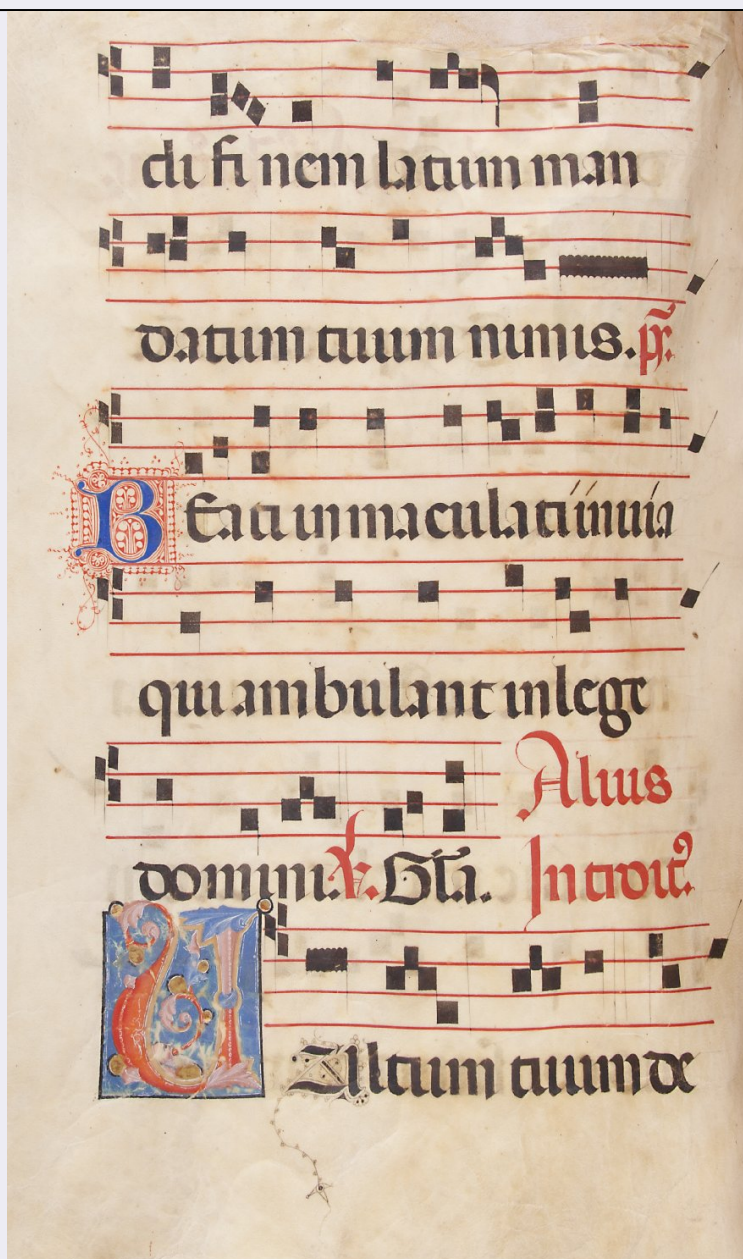 di finem latum man
datum tuum nimis. ps.
BEati inmaculati in via
qui ambulant in lege
domini. V. Gl̄a. Alius
Introit9.
VUltum tuum de